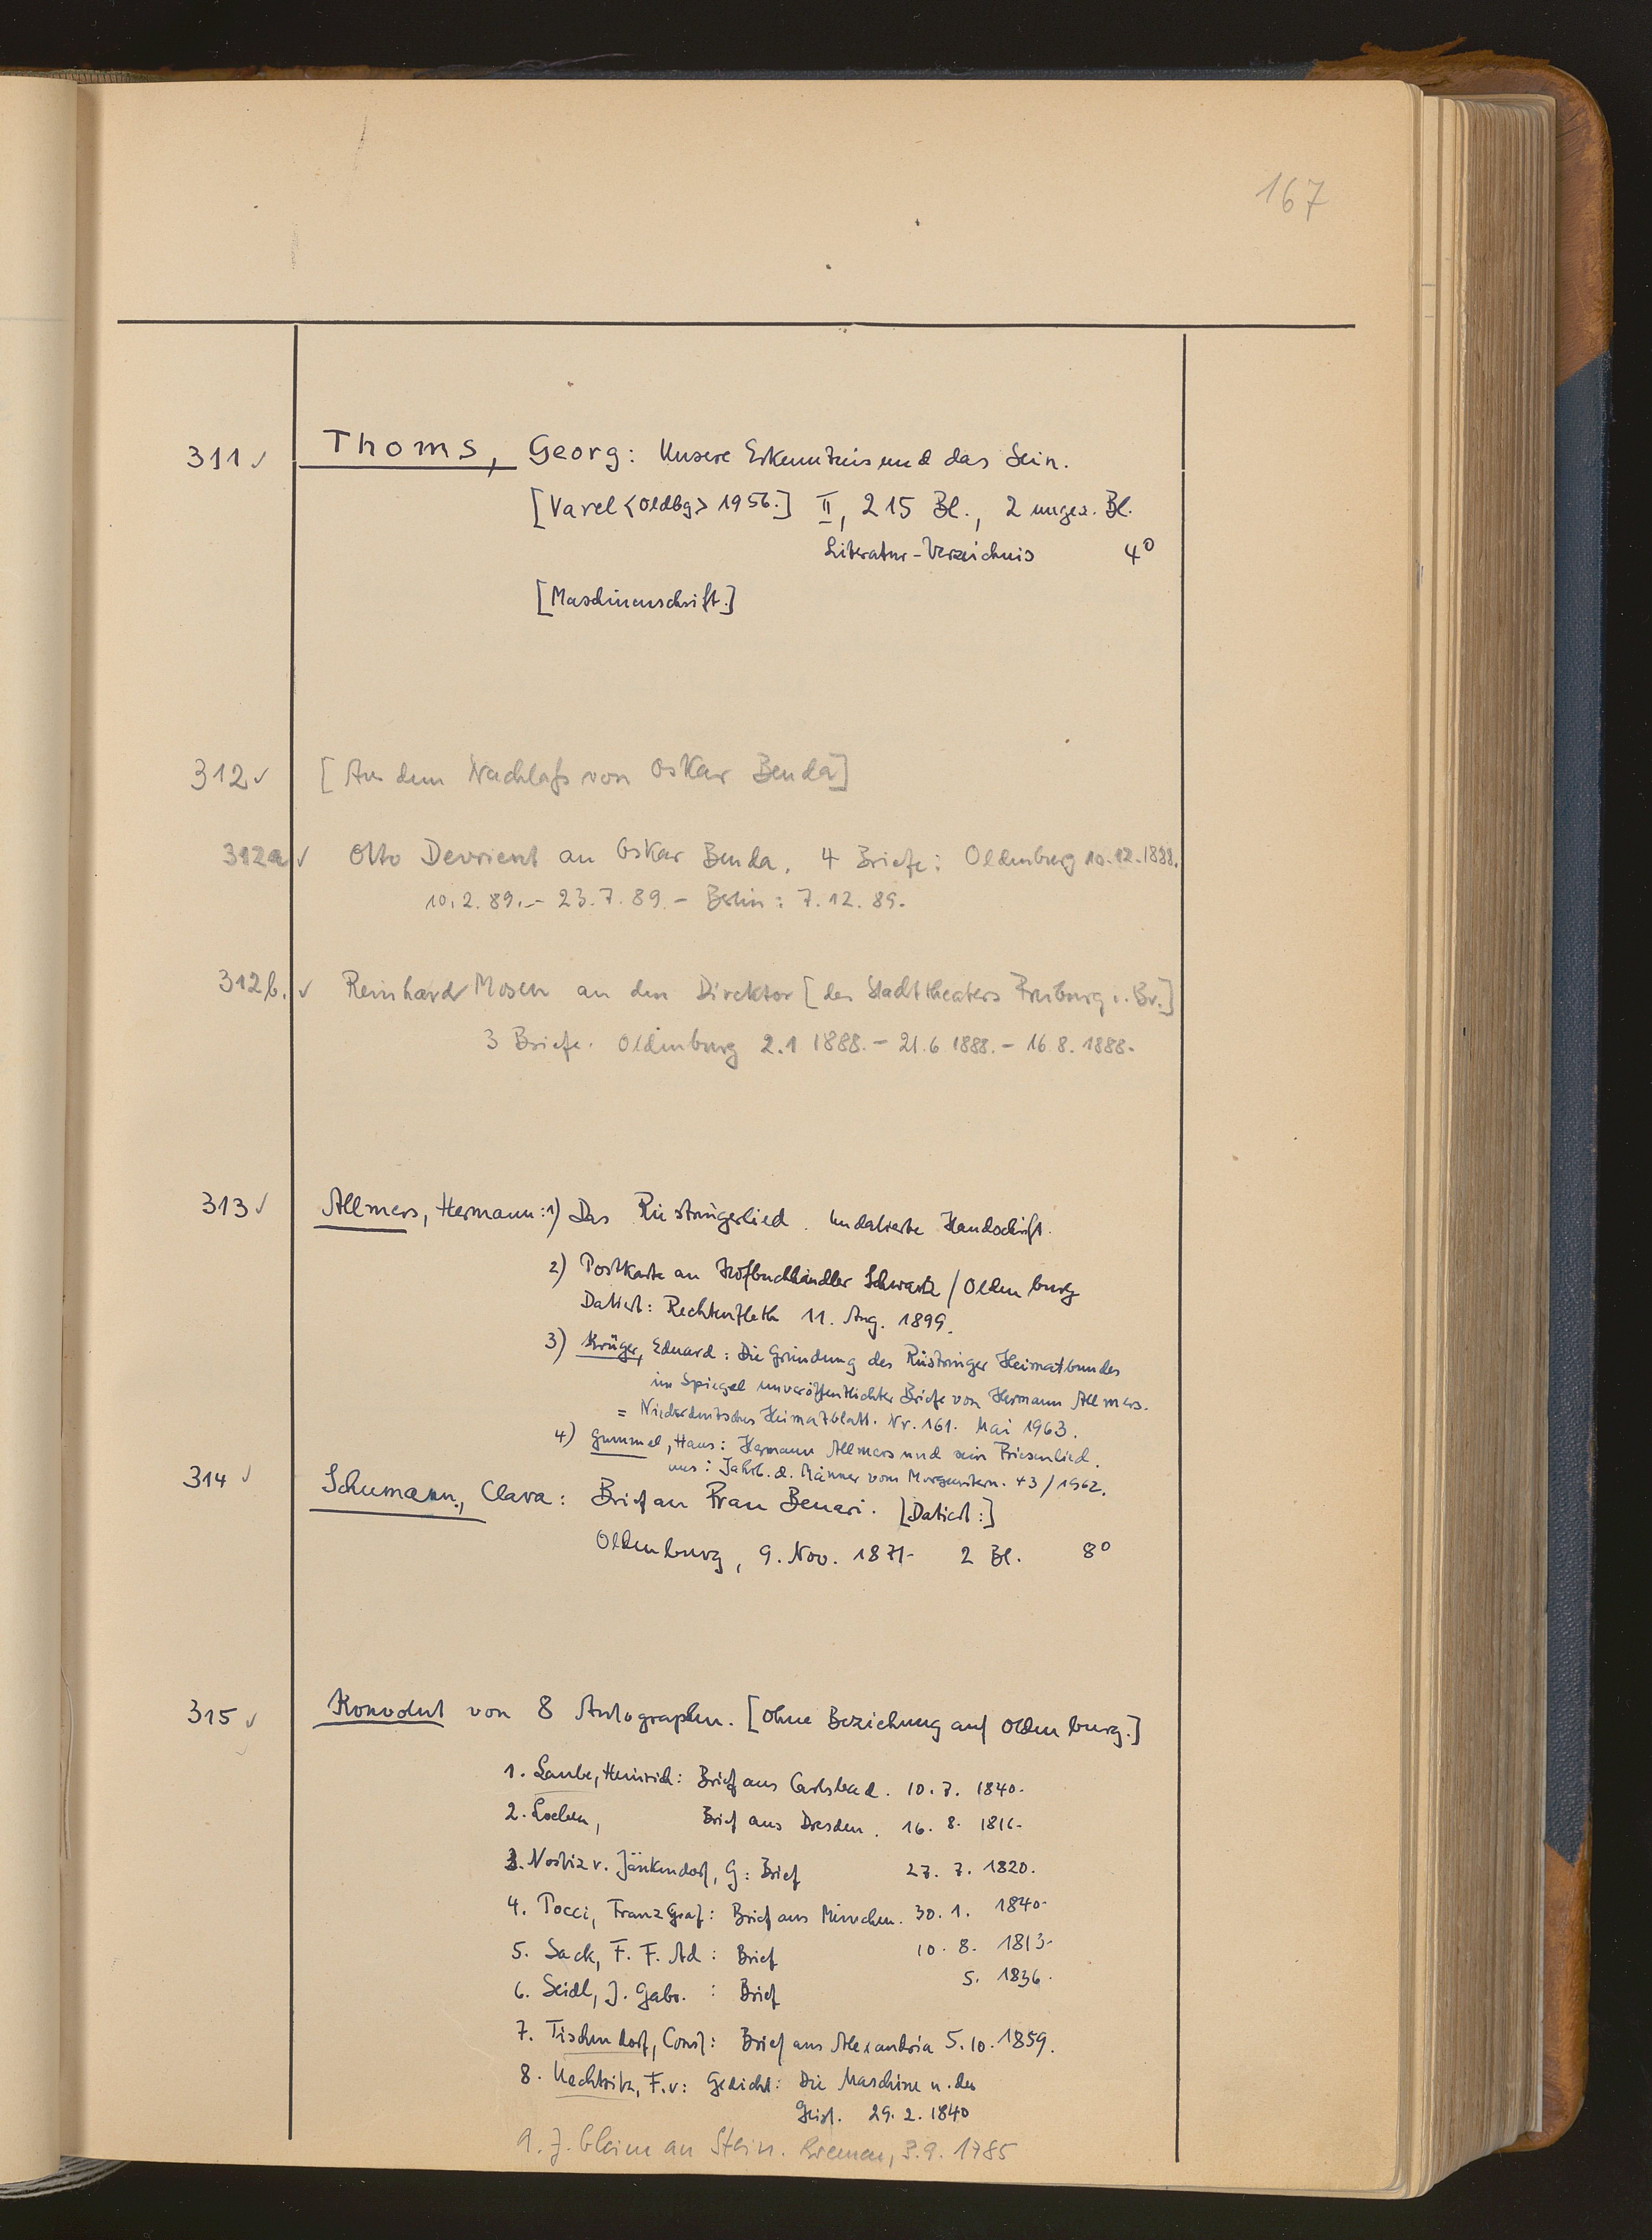 167
311 ✓ Thoms, Georg: Unsere Erkenntnis und das Sein.
[Varel <Oldbg> 1956.] II, 215 Bl., 2 ungez. Bl.
Literatur-Verzeichnis 4°
[Maschinenschrift.]
312 ✓ [Aus dem Nachlaß von Oskar Benda]
312a ✓ Otto Devrient an Oskar Benda. 4 Briefe: Oldenburg 10.12.1888.
10.2.89.- 23.7.89 - Berlin: 7.12.89.
312b. ✓ Reinhard Mosen an den Direktor [des Stadttheaters Freiburg i. Br.]
3 Briefe. Oldenburg 2.1 1888.- 21.6 1888.- 16.8.1888.
313 ✓ Allmers, Hermann: 1) Das Rüstringerlied. Undatierte Handschrift.
2) Postkarte an Hofbuchhändler Schwartz / Oldenburg
Datiert: Rechtenfleth 11. Aug. 1899.
3) Krüger, Eduard: Die Gründung des Rüstringer Heimatbundes
im Spiegel unveröffentlichter Briefe von Hermann Allmers.
= Niederdeutsches Heimatblatt. Nr. 161. Mai 1963.
4) Gummel, Hans: Hermann Allmers und sein Friesenlied.
aus: Jahrb. d. Männer vom Morgenstern. 43/1962.
314 ✓ Schumann, Clara: Brief an Frau Benari. [Datiert:]
Oldenburg, 9. Nov. 1871- 2 Bl. 8°
315 ✓ Konvolut von 8 Autographen. [ohne Beziehung auf Oldenburg.]
1. Laube, Heinrich: Brief aus Carlsbad. 10. 7. 1840.
2. Loeben, Brief aus Dresden. 16. 8. 1816.
3. Nostiz v. Jänkendorf, G: Brief 27. 7. 1820.
4. Pocci, Franz Graf: Brief aus München. 30. 1. 1840.
5. Sack, F. F. Ad: Brief 10. 8. 1813.
6. Seidl, J. Gabr.: Brief 5. 1836.
7. Tischendorf, Const: Brief aus Alexandria 5.10.1859.
8. Uechtritz, F. v: Gedicht: Die Maschine u. der
Geist. 29. 2. 1840
9. J. Gleim an Stein. Bremen, 3.9.1785